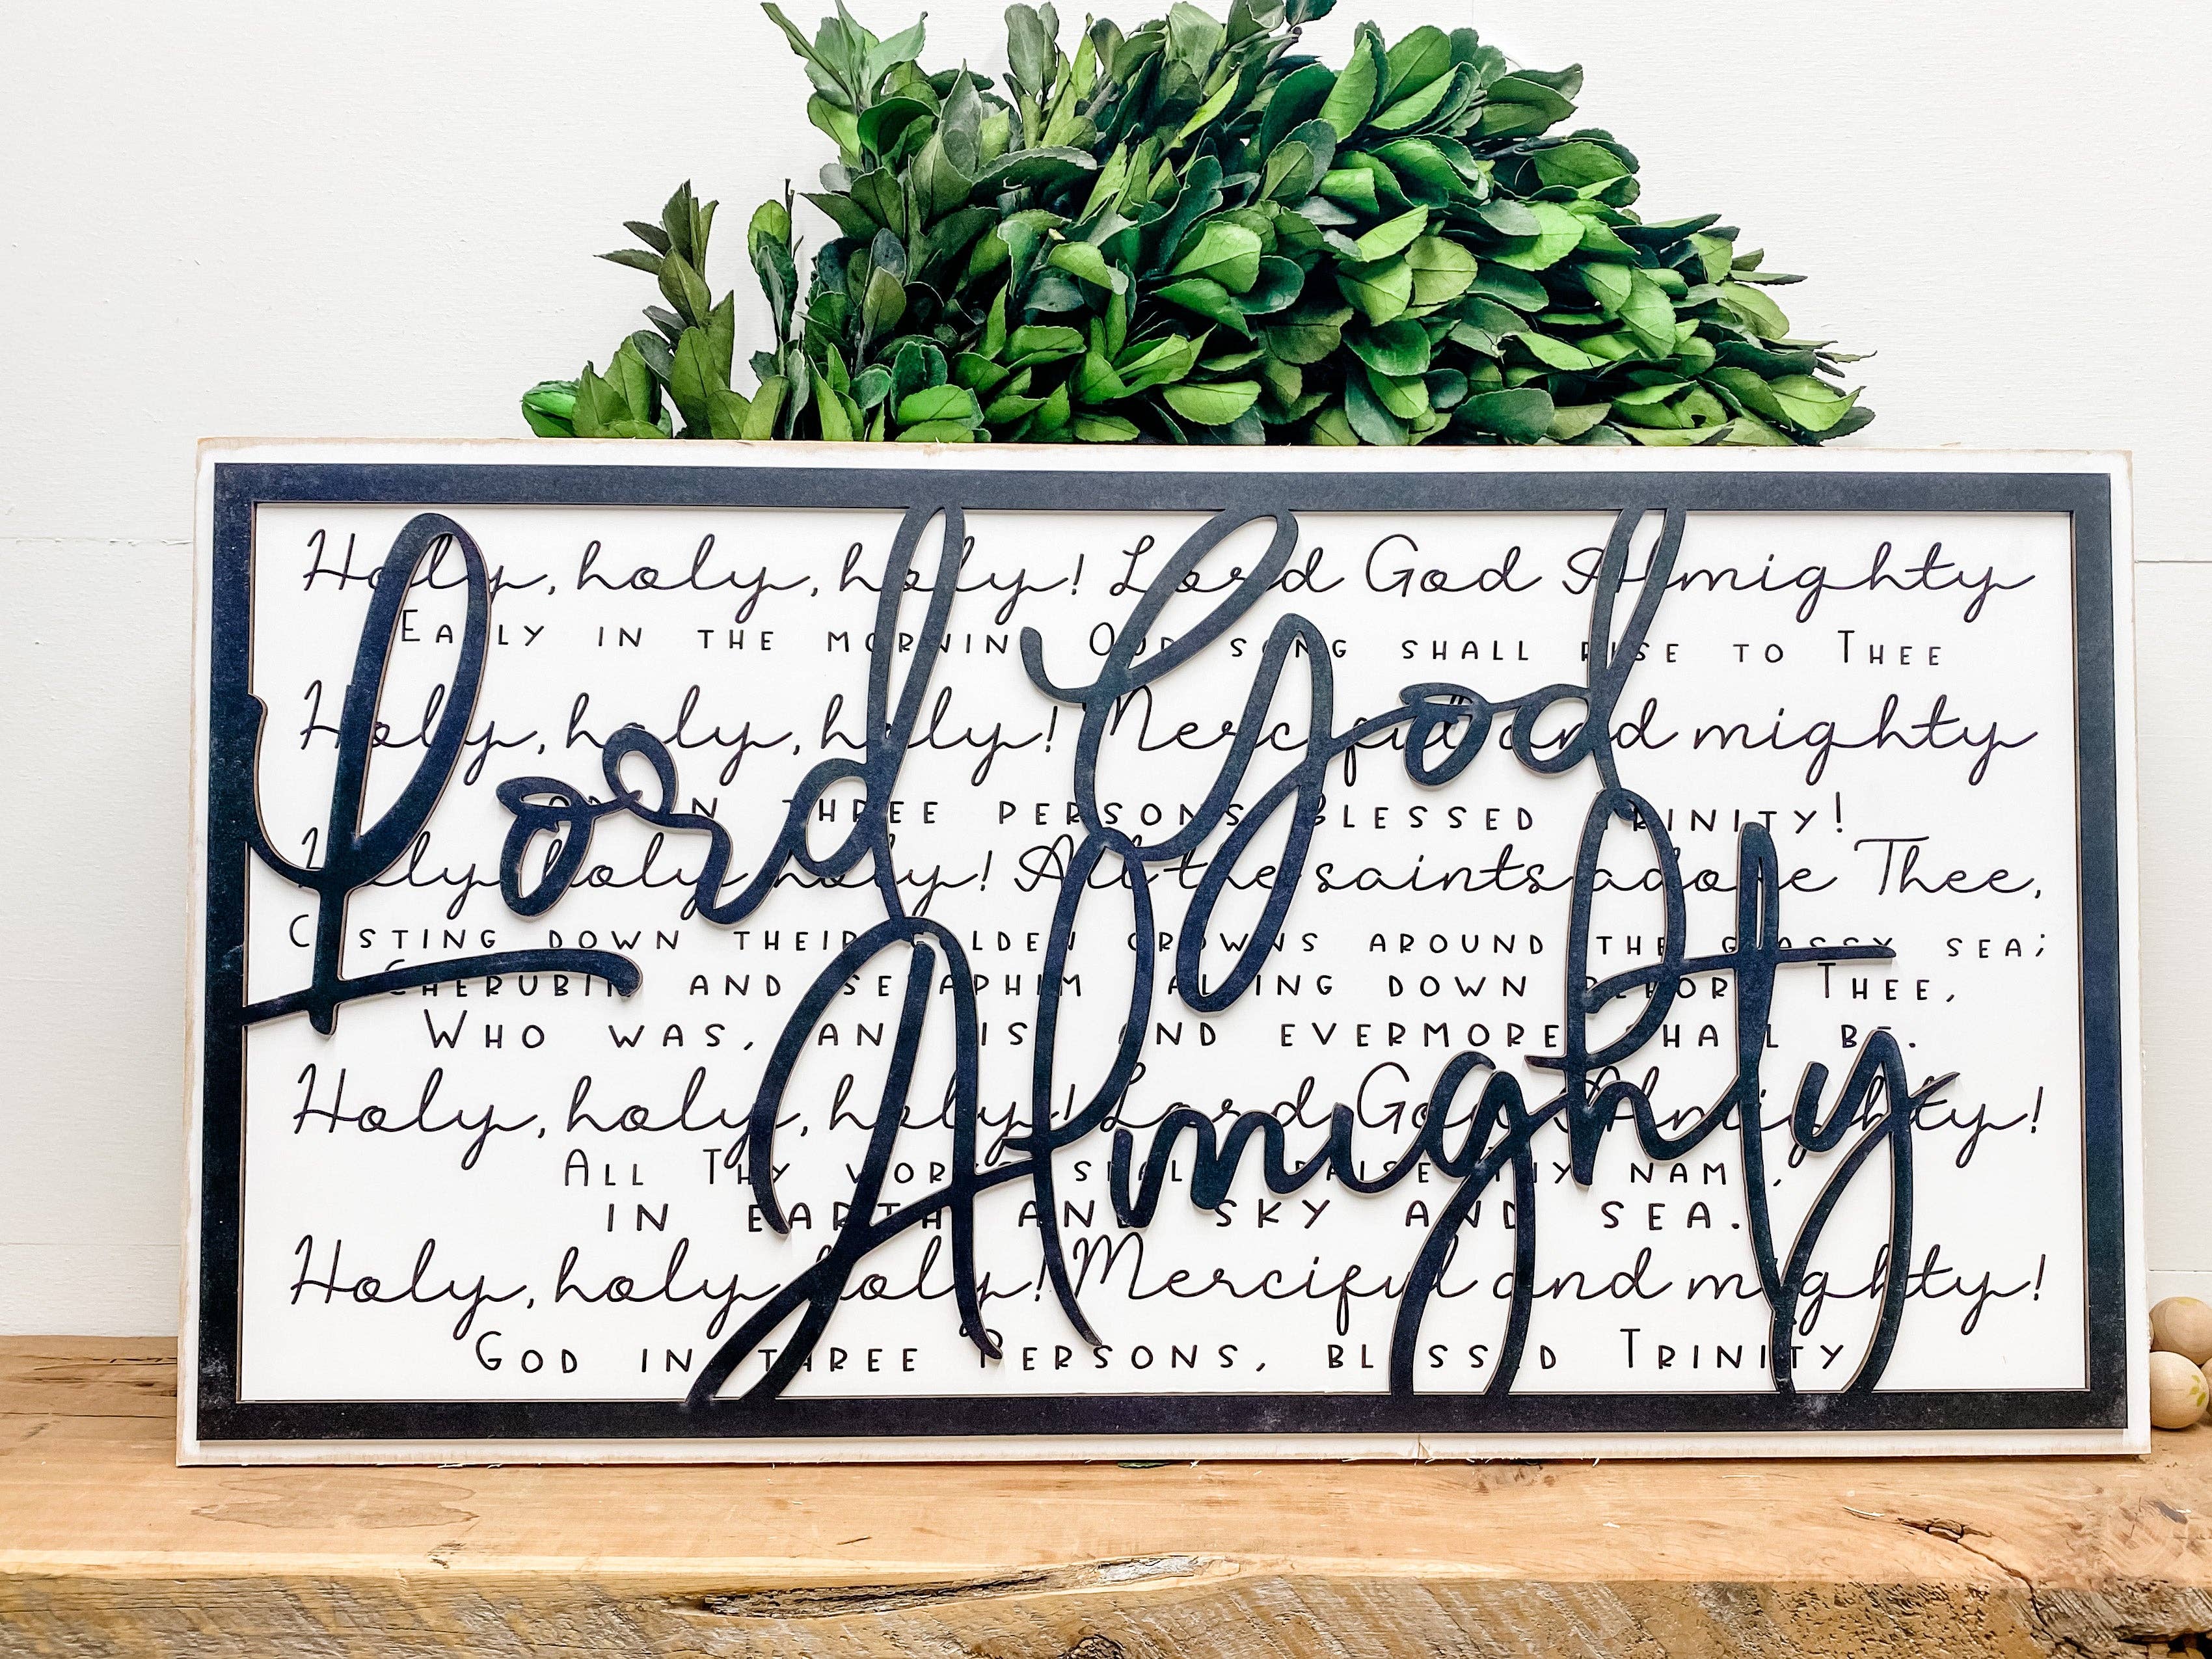 Holy, holy, holy! Lord God Almighty
Early in the morning Our song shall rise to Thee
Holy, holy, holy! Merciful and mighty
God in three persons blessed Trinity!
Holy, holy, holy! All the saints adore Thee,
Casting down their golden crowns around the glassy sea;
Cherubim and seraphim falling down before Thee,
Who was, and is, and evermore shall be.
Holy, holy, holy! Lord God Almighty!
All Thy works shall praise Thy name,
in earth and sky and sea.
Holy, holy, holy! Merciful and mighty!
God in three Persons, blessed Trinity
Lord God
Almighty